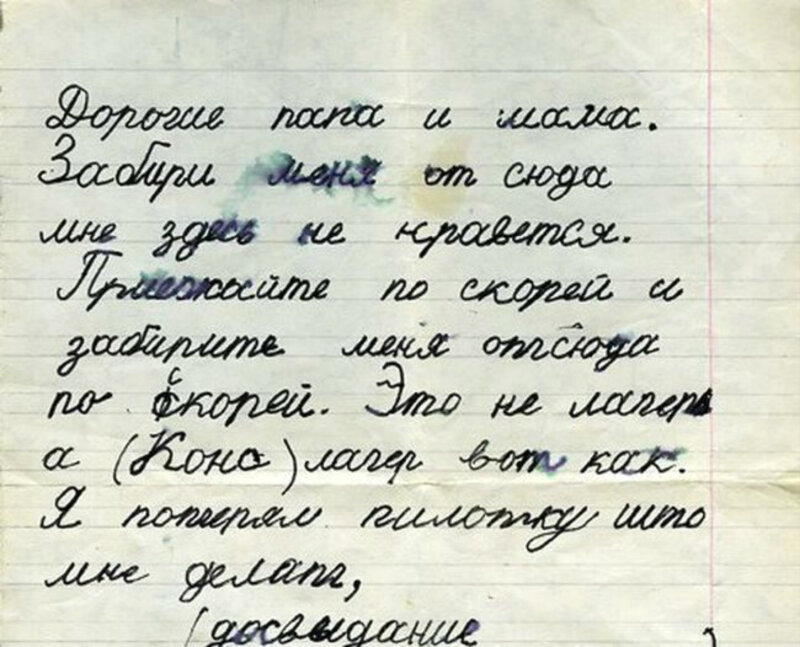 Дорогие папа и мама.
Забири меня от сюда
мне здесь не нравется.
Приезжайте по скорей и
забирите меня отсюда
по скорей. Это не лагерь
а (Конс) лагер вот как.
Я потерял пилотку што
мне делат,
(досвыдание